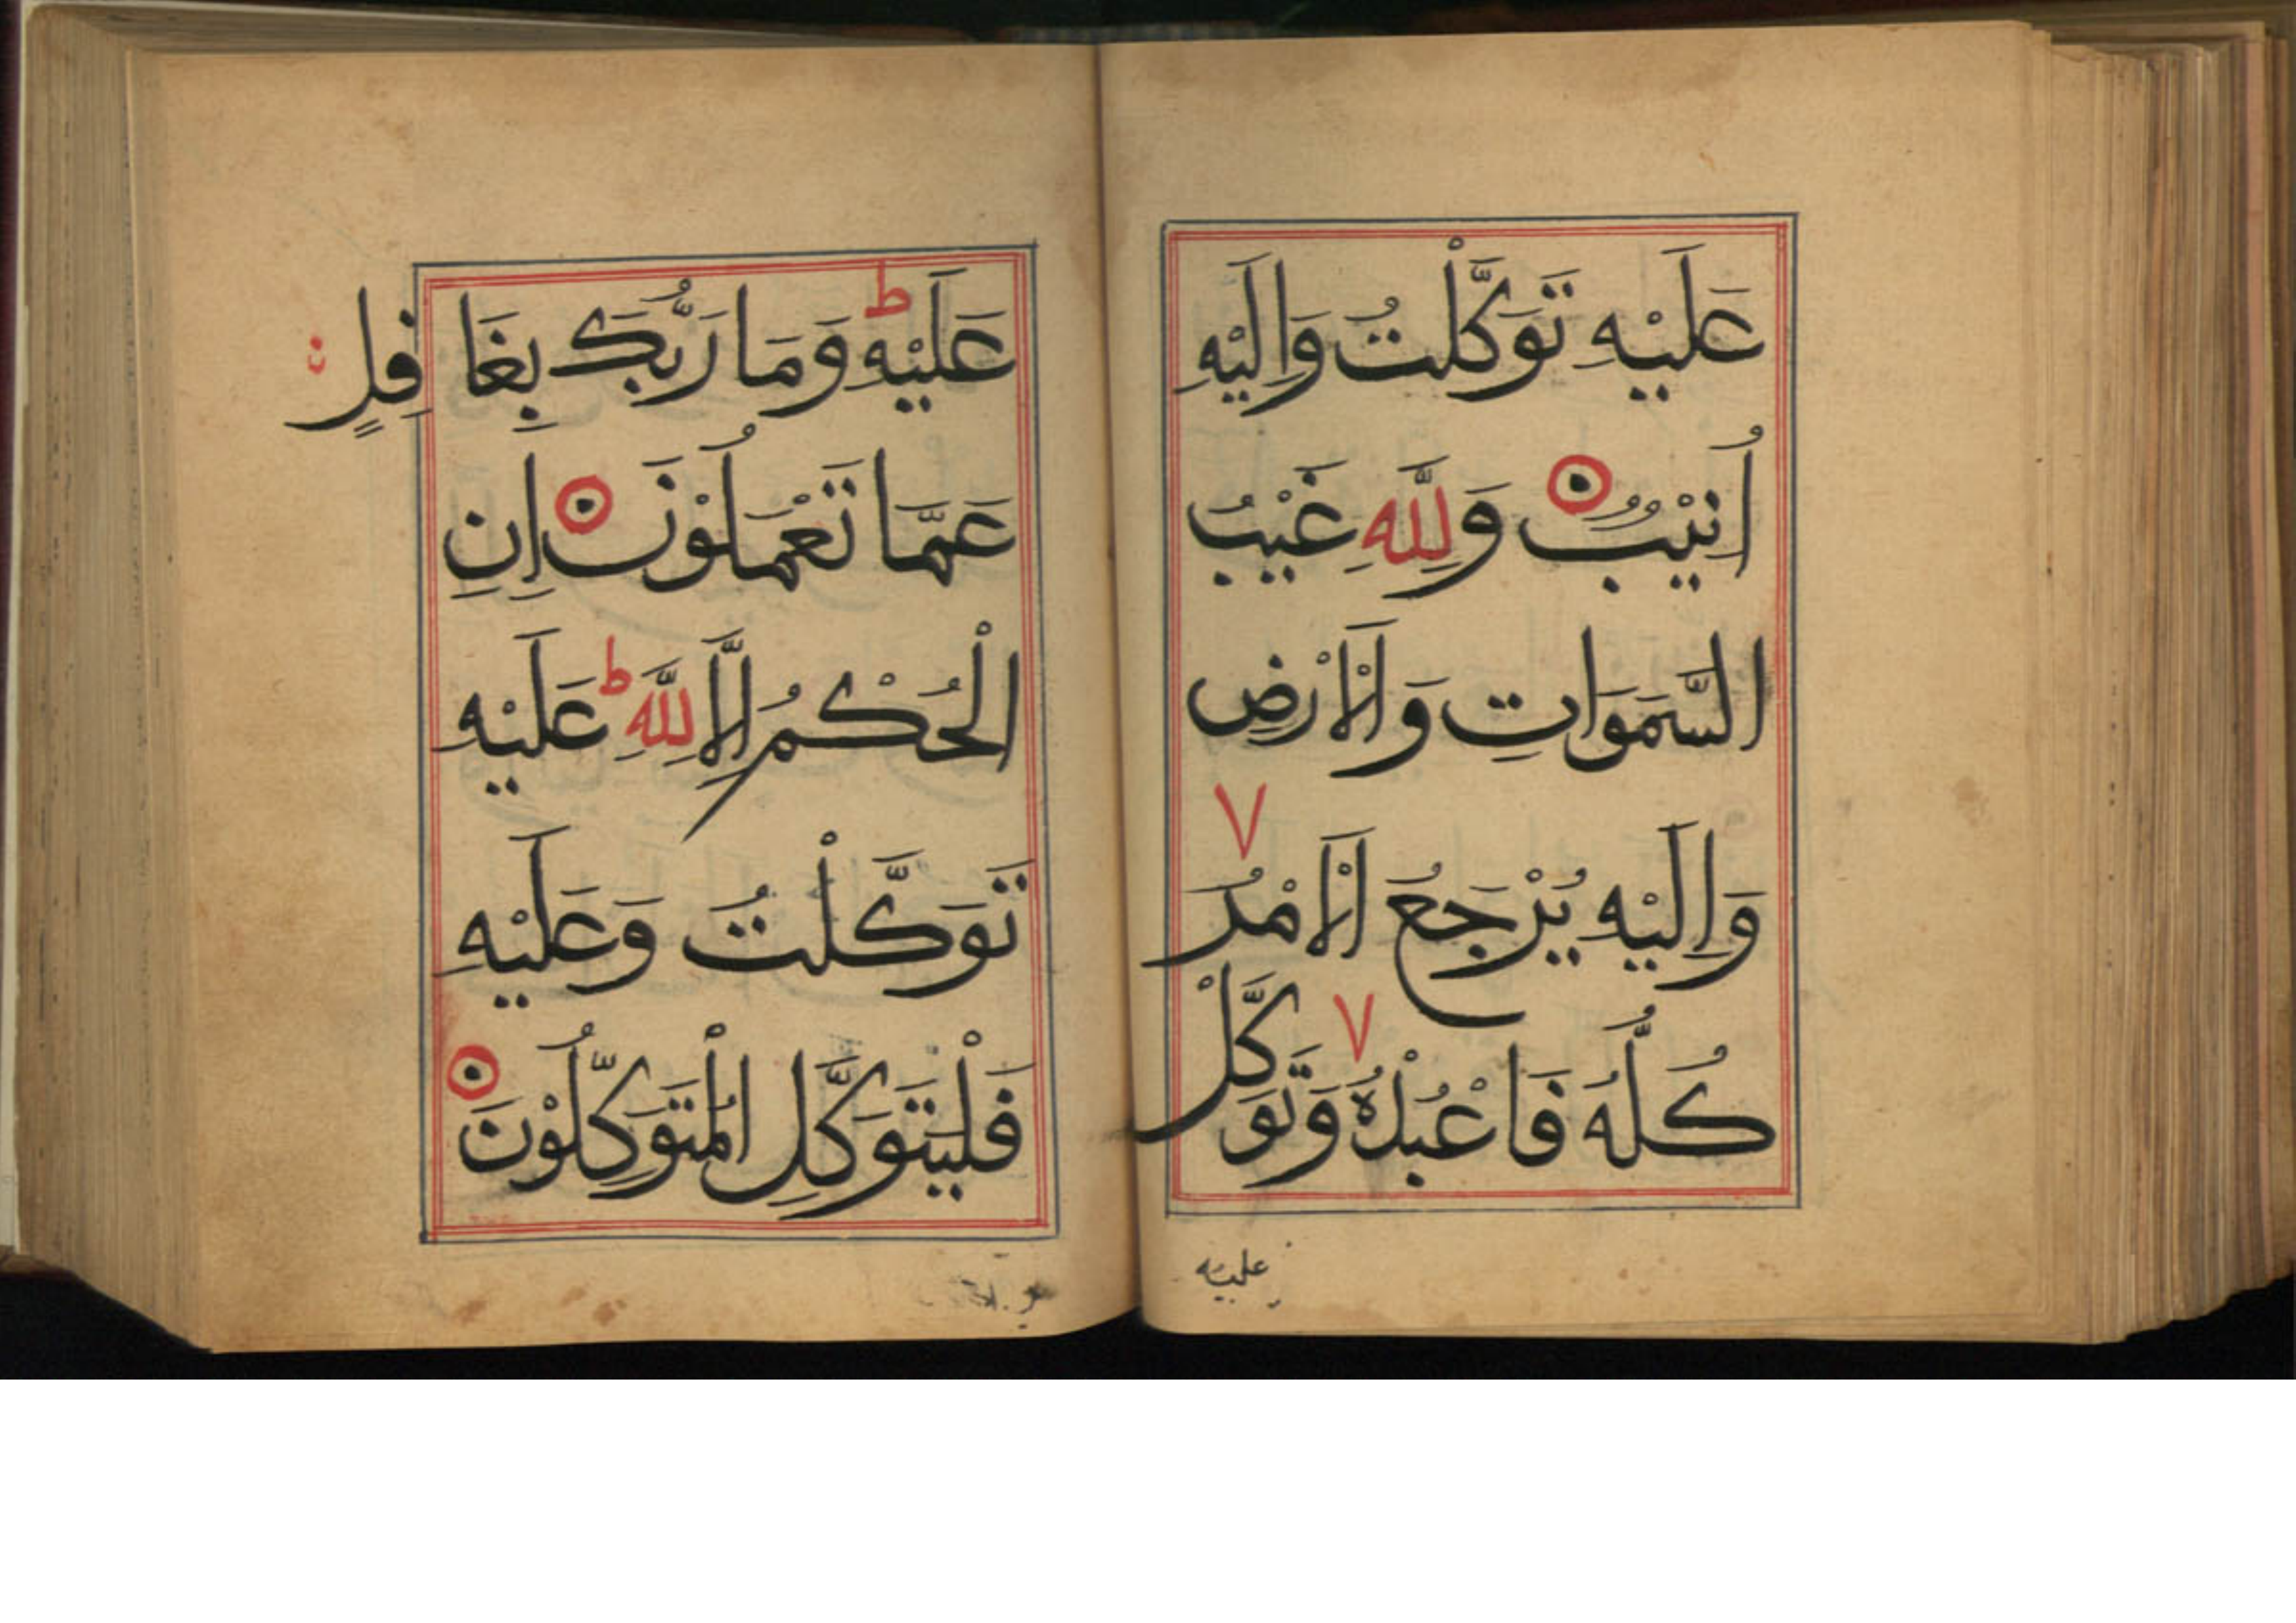 عَلَيْهِ تَوَكَّلْتُ وَاِلَيْهِ
اُنِيْبُ وَلِلّٰهِ غَيْبُ
السَّمَوَاتِ وَالْاَرْضِ
وَاِلَيْهِ يُرْجَعُ الْاَمْرُ
كُلُّهُ فَاعْبُدْهُ وَتَوَكَّلْ
عليه
عَلَيْهِ ط وَمَا رَبُّكَ بِغَافِلٍ
عَمَّا تَعْمَلُوْنَ اِنِ
الْحُكْمُ اِلَّا لِلّٰهِ ط عَلَيْهِ
تَوَكَّلْتُ وَعَلَيْهِ
فَلْيَتَوَكَّلِ الْمُتَوَكِّلُوْنَ